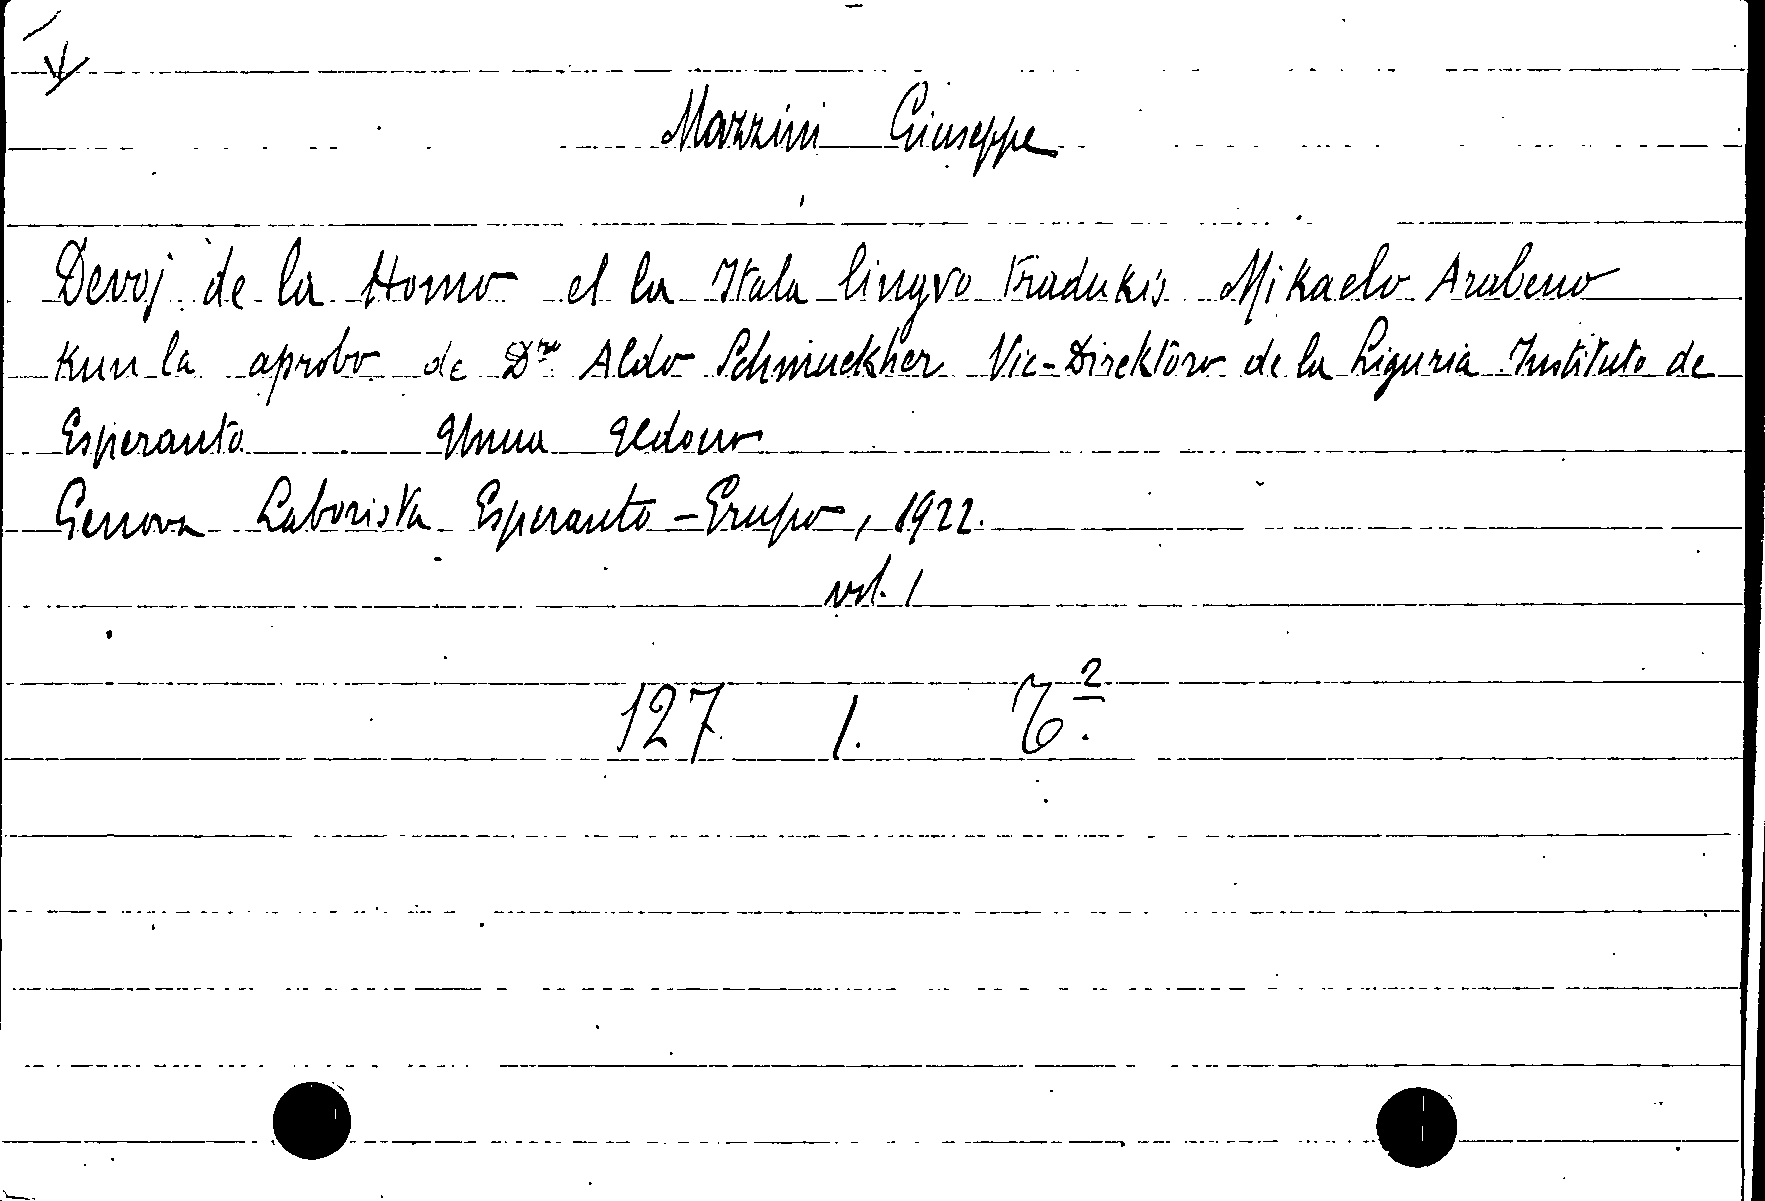 Mazzini Giuseppe
Devoj de la Homo el la Itala lingvo tradukis Mikaelo Arabeno
kun la aprobo de Dre Aldo Schmuckher Vic-Direktoro de la Liguria Instituto de
Esperanto Unua Eldono
Genova Laborista Esperanto-Grupo, 1922.
vol. 1
127 1.